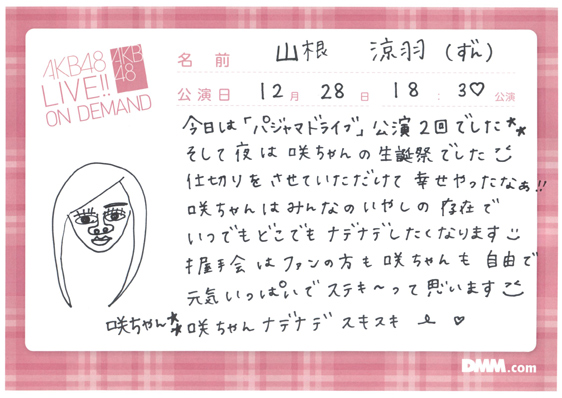 AKB48
LIVE!!
ON DEMAND
AKB
48
名前 山根 涼羽 (ずん)
公演日 12月 28日 18:30公演
今日は「パジャマドライブ」公演2回でした
そして夜は咲ちゃんの生誕祭でした
仕切りをさせていただけて幸せやったなぁ!!
咲ちゃんはみんなのいやしの存在で
いつでもどこでもナデナデしたくなります
握手会はファンの方も咲ちゃんも自由で
元気いっぱいでステキ〜って思います
咲ちゃん 咲ちゃんナデナデスキスキ
DMM.com